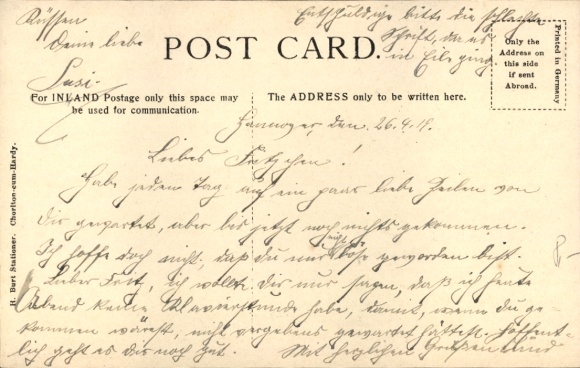 POST CARD.
For INLAND Postage only this space may
be used for communication.
The ADDRESS only to be written here.
Only the
Address on
this side
if sent
Abroad.
Printed in Germany
H. Burt Stationer. Chorlton-cum-Hardy.
Hannover, den 26.4.19.
Liebes Fritzchen!
Habe jeden Tag auf ein paar liebe Zeilen von
dir gewartet, aber bis jetzt noch nichts gekommen.
Ich hoffe doch nicht, daß du mir böse geworden bist.
Lieber Fritz, ich wollte dir nur sagen, daß ich heute
Abend keine Klavierstunde habe, damit, wenn du ge-
kommen wärest, nicht vergebens gewartet hättest. Hoffent-
lich geht es dir noch gut. Mit herzlichen Grüßen und
Küssen
Deine liebe
Susi.
Entschuldige bitte die schlechte
Schrift, da es
in Eile ging.